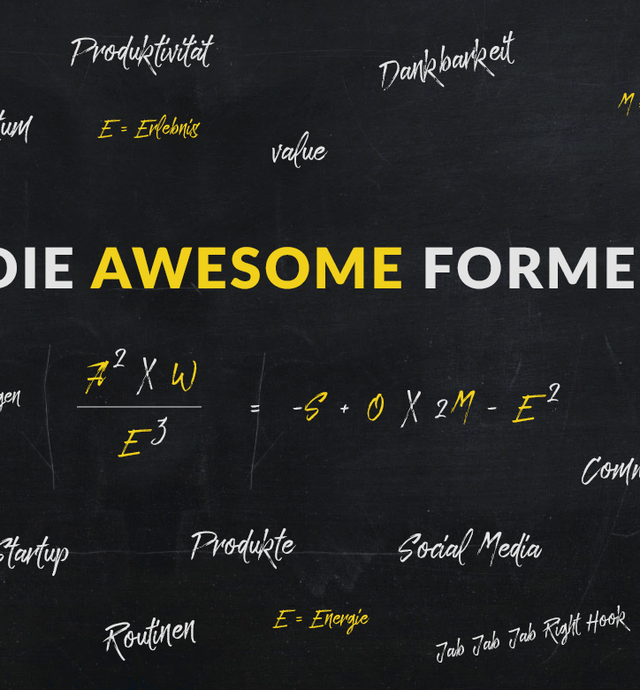 Produktivität
Dankbarkeit
M =
tum
E = Erlebnis
value
DIE AWESOME FORME
A² X W
E³
= -S + O X 2M - E²
gen
Comm
Startup
Produkte
Social Media
Routinen
E = Energie
Jab Jab Jab Right Hook